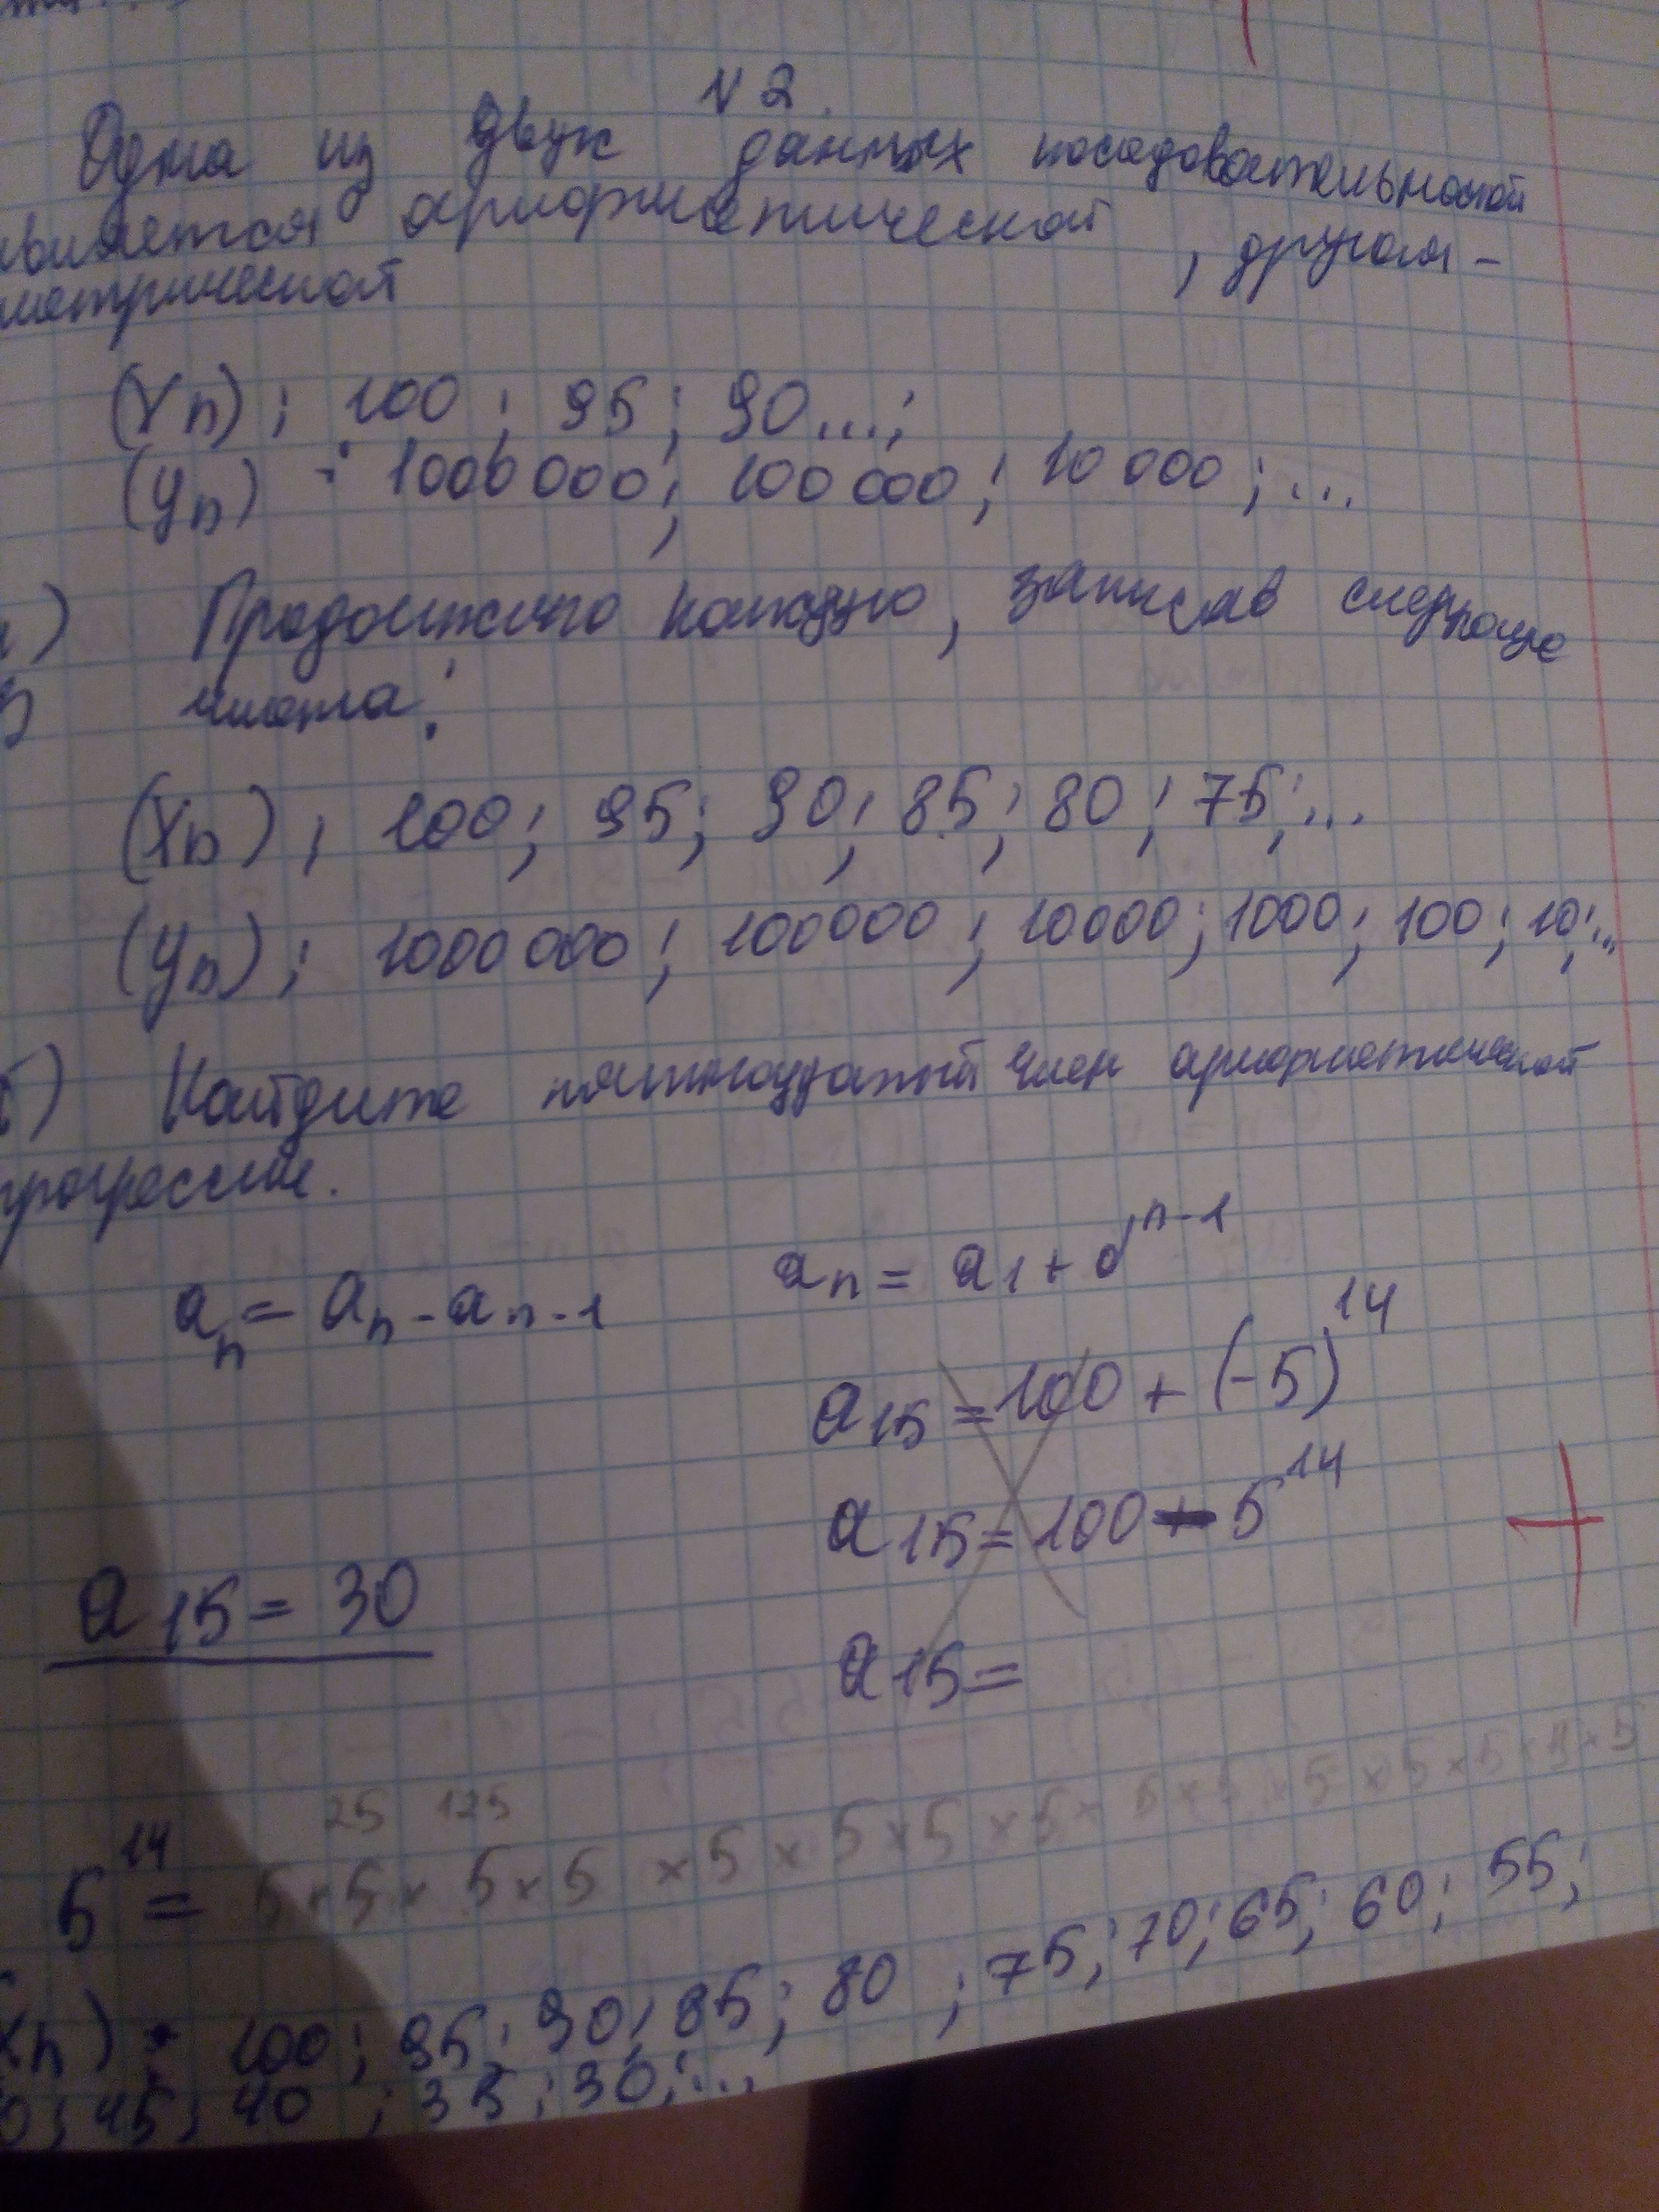 № 2.
Одна из двух данных последовательностей
является арифметической, другая -
метрической
(Xn); 100; 95; 90...;
(yn) : 1000 000; 100 000; 10 000; ...
а) Продолжите каждую, записав следующие
числа:
(Xn); 100; 95; 90; 85; 80; 75; ...
(yn); 1000 000; 100000; 10000; 1000; 100; 10; ...
б) Найдите пятнадцатый член арифметической
прогрессии.
an = a1 + d^n-1
an = an - an-1
a15 = 100 + (-5)^14
a15 = 100 - 5^14
a15 = 30
a15 =
25 125
5^14 = 5×5×5×5×5×5×5×5×5×5×5×5×5×5
Xn) : 100; 95; 90; 85; 80; 75; 70; 65; 60; 55;
0; 45; 40; 35; 30; ...